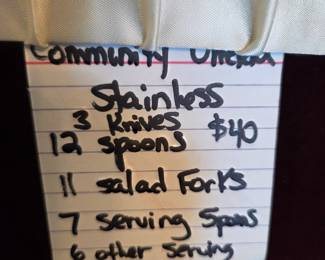 Community
Stainless
3 Knives $40
12 spoons
11 salad Forks
7 serving Spoons
6 other serving